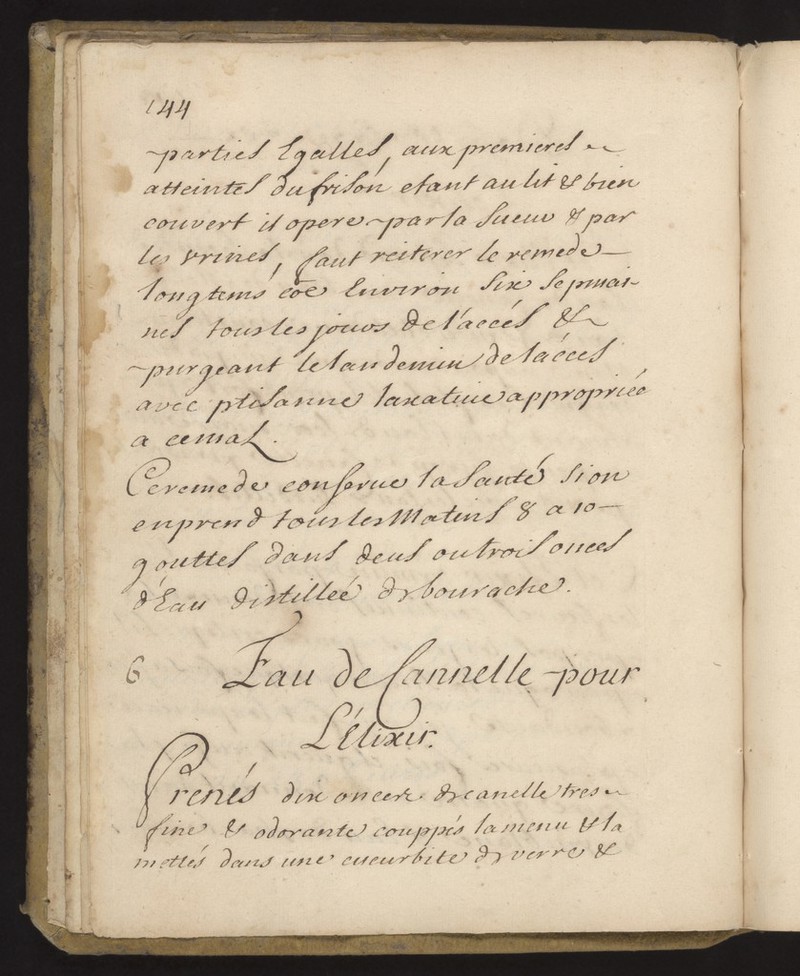 144
parties Egalles, aux premieres
atteintes du frison etant au lit & bien
couvert il opere par la Sueur & par
les vrines, faut reiterer le remede
longtems cõe Environ Six Sepmai-
nes tous les jours de l'accés &
purgeant le landemin de láccés
avec ptisanne laxatiue appropriée
a ce mal.
Ce remede conserue la Santé Si on
en prend tous les Matins 8 a 10
gouttes dans deus ou trois onces
d'Eau distilleé de bourache.
6 Eau de Cannelle pour
L'Élixir.
Prenés dix onces de canelle tres
fine & odorante couppés la menu & la
mettés dans une cucurbite de verre &